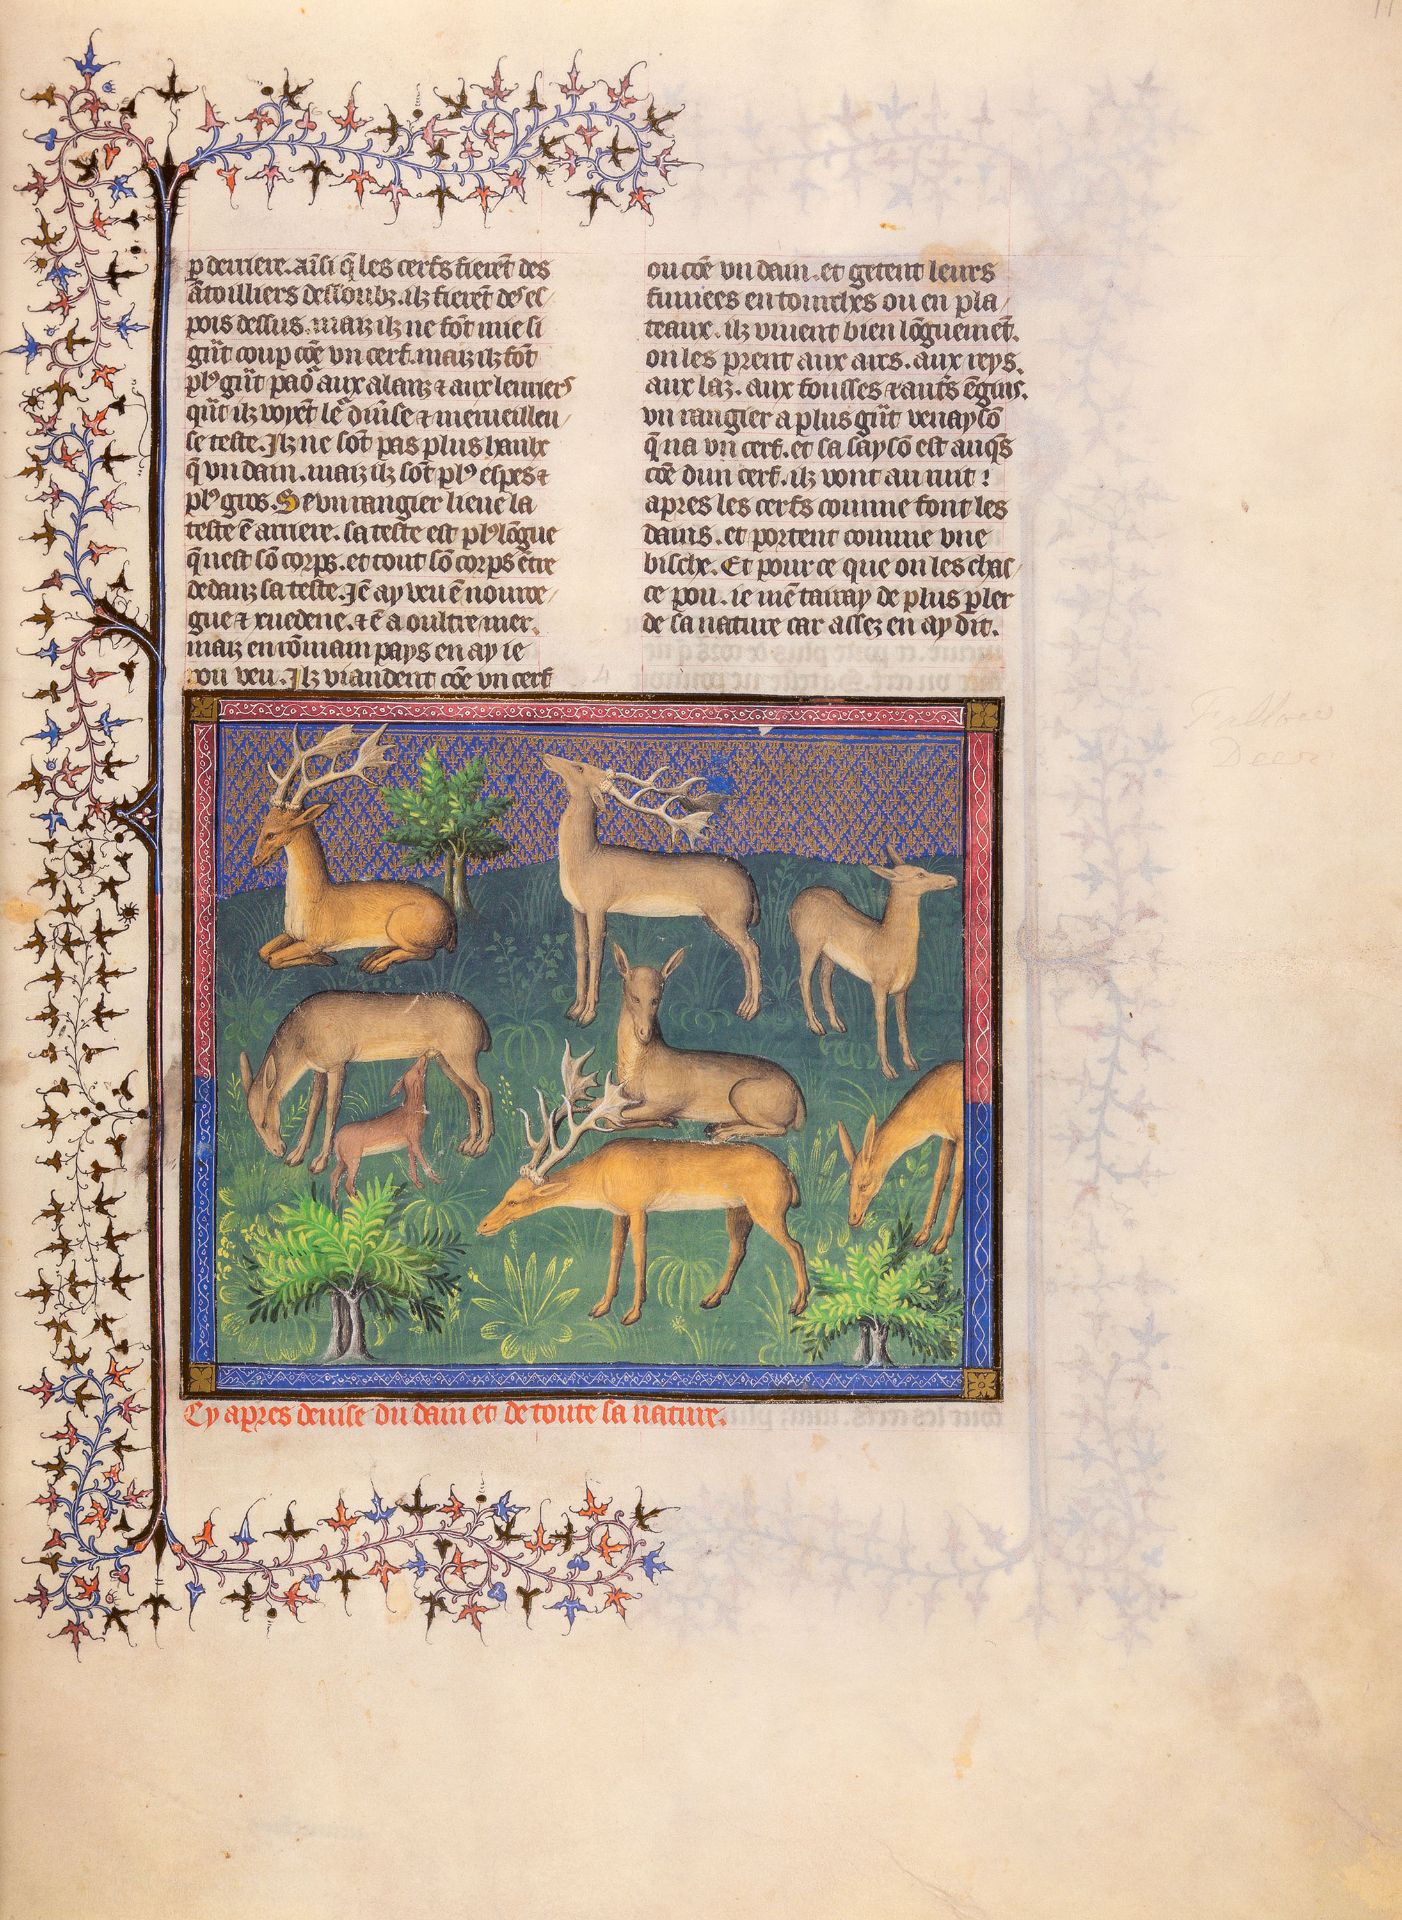 p derriere. ainsi q̃ les cerfs fierẽt des
ãtoilliers dessoubz. ilz fierẽt des es
pois dessus. maiz ilz ne fõt mie si
grãt coup cõe vn cerf. maiz ilz fõt
plꝰ grãt paõr aux alanz & aux leuriers
qũt ilz voyẽt le diuise & merueilleu/
se teste. Ilz ne sõt pas plus haulz
q̃ vn dain. maiz ilz sõt plꝰ espes &
plꝰ gros. Se vn rangier lieue la
teste ẽ arriere. sa teste est plꝰ lõgue
q̃ nest sõ corps. et tout sõ corps ẽtre
dedanz sa teste. Jẽ ay veu ẽ nourue/
gue & xuedene. & ẽ a oultre mer.
maiz en rõmain pays en ay ie
pou veu. Ilz viandent cõe vn cerf
ou cõe vn dain. et getent leurs
fumees en torches ou en pla/
teaux. ilz viuent bien lõguemẽt.
on les prent aux arcs. aux reys.
aux laz. aux fousses & autr̃s ẽgins.
vn rangier a plus grãt venaysõ
q̃ na vn cerf. et sa saysõ est auq̃s
cõe dun cerf. ilz vont au ruit
apres les cerfs comme font les
dains. et portent comme vne
bische. Et pour ce que on les chas/
ce pou. ie mẽ tairay de plus p̱ler
de sa nature car assez en ay dit.
Fallow
Deer
Cy apres deuise du dain et de toute sa nature.